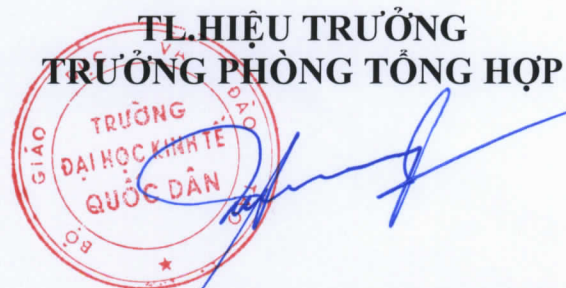 TL.HIỆU TRƯỞNG
TRƯỞNG PHÒNG TỔNG HỢP
BỘ GIÁO DỤC VÀ ĐÀO TẠO
TRƯỜNG
ĐẠI HỌC KINH TẾ
QUỐC DÂN